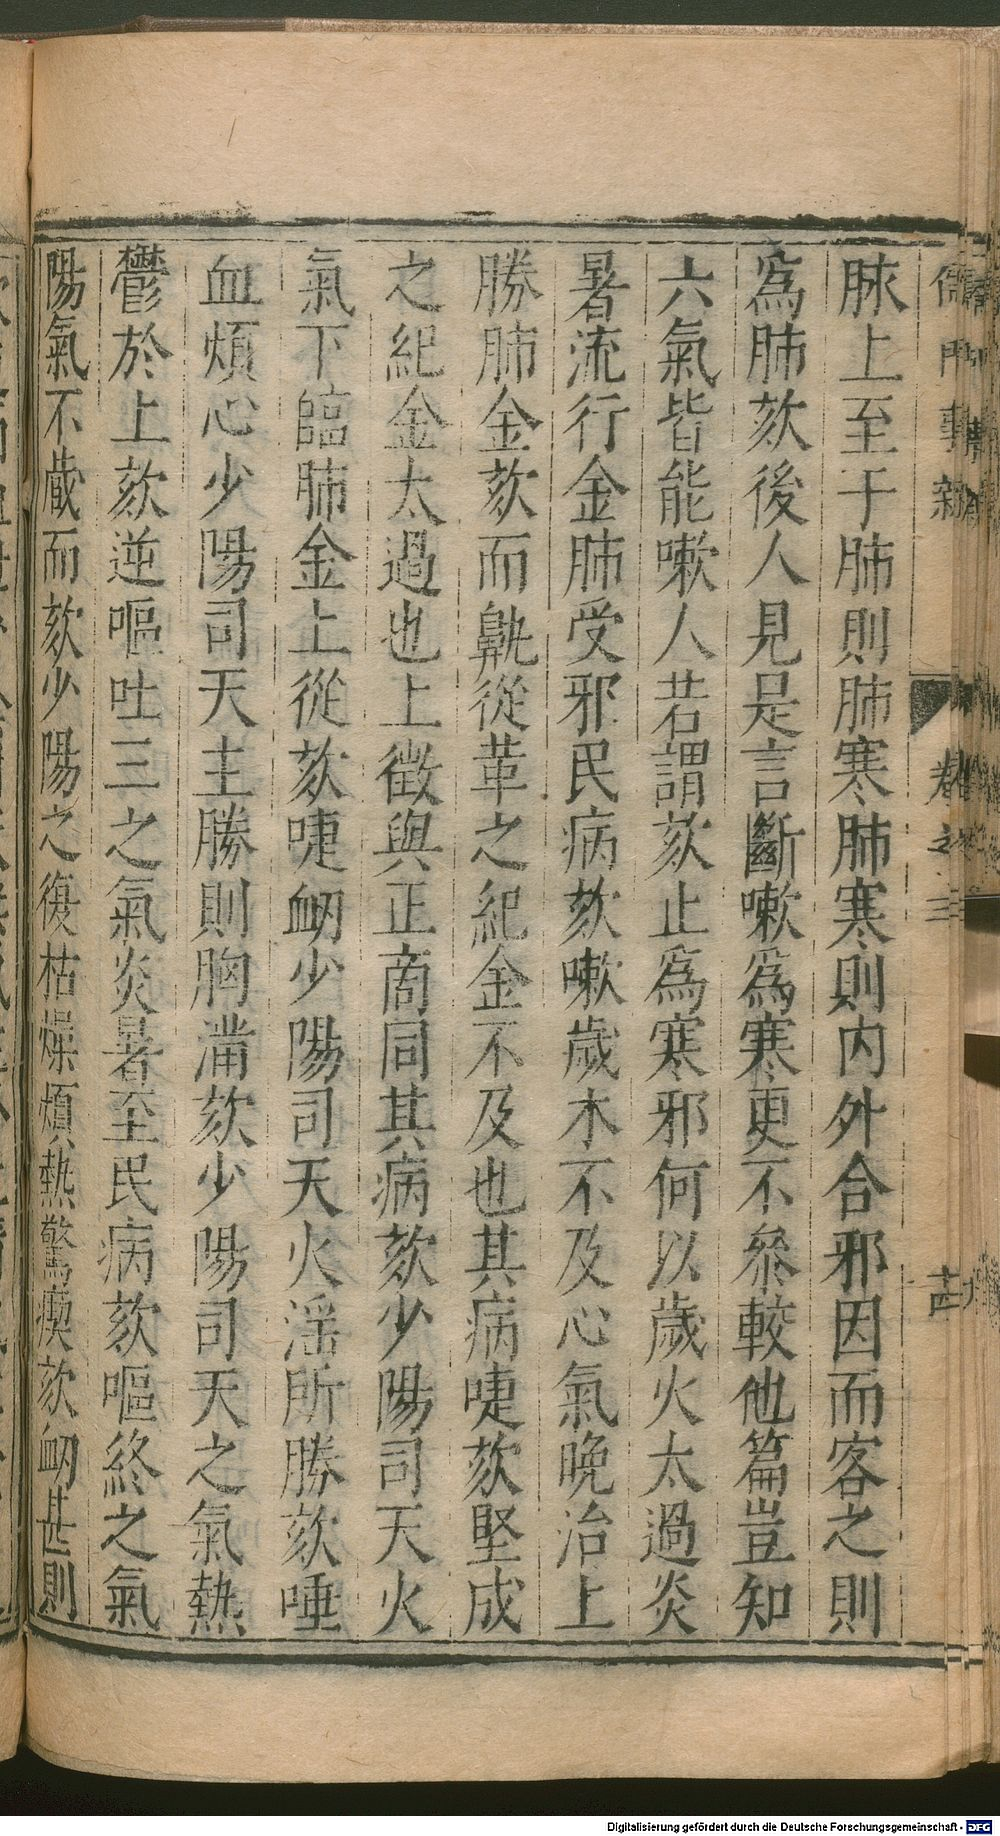 儒門事親 卷之三 十四
脉上至于肺則肺寒肺寒則內外合邪因而客之則
爲肺欬後人見是言斷嗽爲寒更不參較他篇豈知
六氣皆能嗽人若謂欬止爲寒邪何以歲火太過炎
暑流行金肺受邪民病欬嗽歲木不及心氣晚治上
勝肺金欬而鼽從革之紀金不及也其病嚏欬堅成
之紀金太過也上徵與正商同其病欬少陽司天火
氣下臨肺金上從欬嚏衂少陽司天火淫所勝欬唾
血煩心少陽司天主勝則胸滿欬少陽司天之氣熱
鬱於上欬逆嘔吐三之氣炎暑至民病欬嘔終之氣
陽氣不藏而欬少陽之復枯燥煩熱驚瘈欬衂甚則
Digitalisierung gefördert durch die Deutsche Forschungsgemeinschaft - DFG